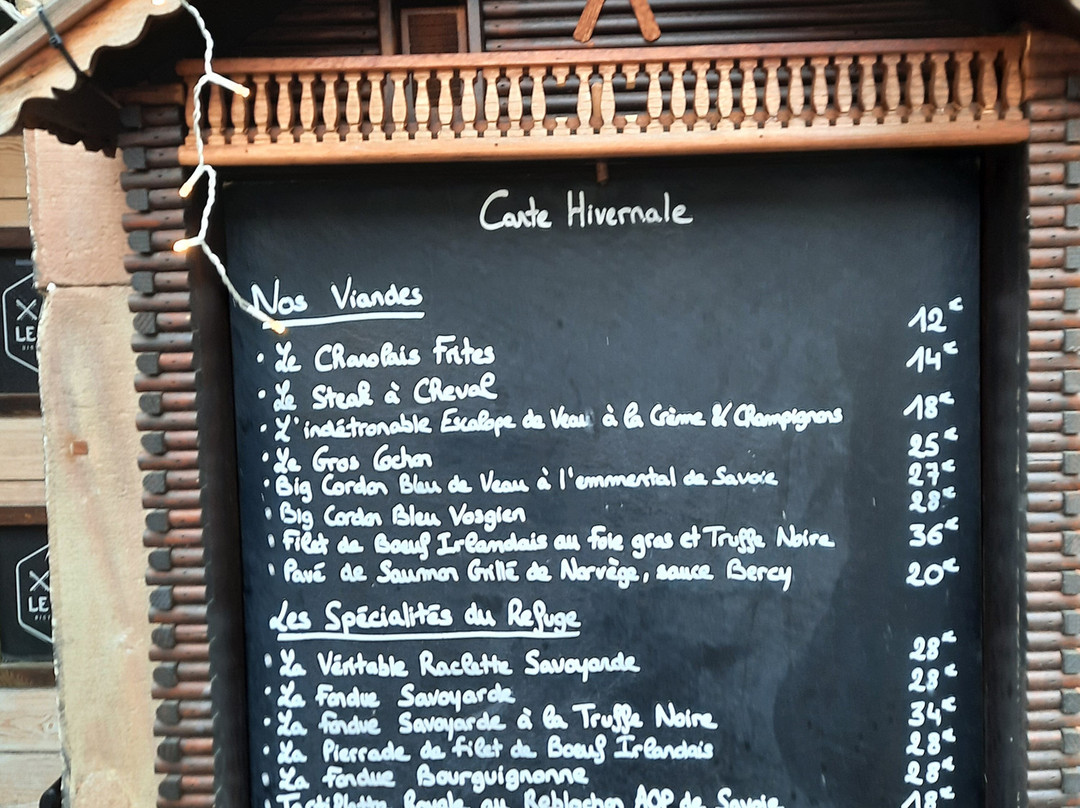 Carte Hivernale
Nos Viandes
• Le Charolais Frites 12€
• Le Steak à Cheval 14€
• L'indétronable Escalope de Veau à la Crème & Champignons 18€
• Le Gros Cochon 25€
• Big Cordon Bleu de Veau à l'emmental de Savoie 27€
• Big Cordon Bleu Vosgien 28€
• Filet de Boeuf Irlandais au foie gras et Truffe Noire 36€
• Pavé de Saumon Grillé de Norvège, sauce Bercy 20€
Les Spécialités du Refuge
• La Véritable Raclette Savoyarde 28€
• La Fondue Savoyarde 28€
• La Fondue Savoyarde à la Truffe Noire 34€
• La Pierrade de filet de Boeuf Irlandais 28€
• La Fondue Bourguignonne 28€
Tartiflette Royale au Reblochon AOP de Savoie 18€
LE
LE